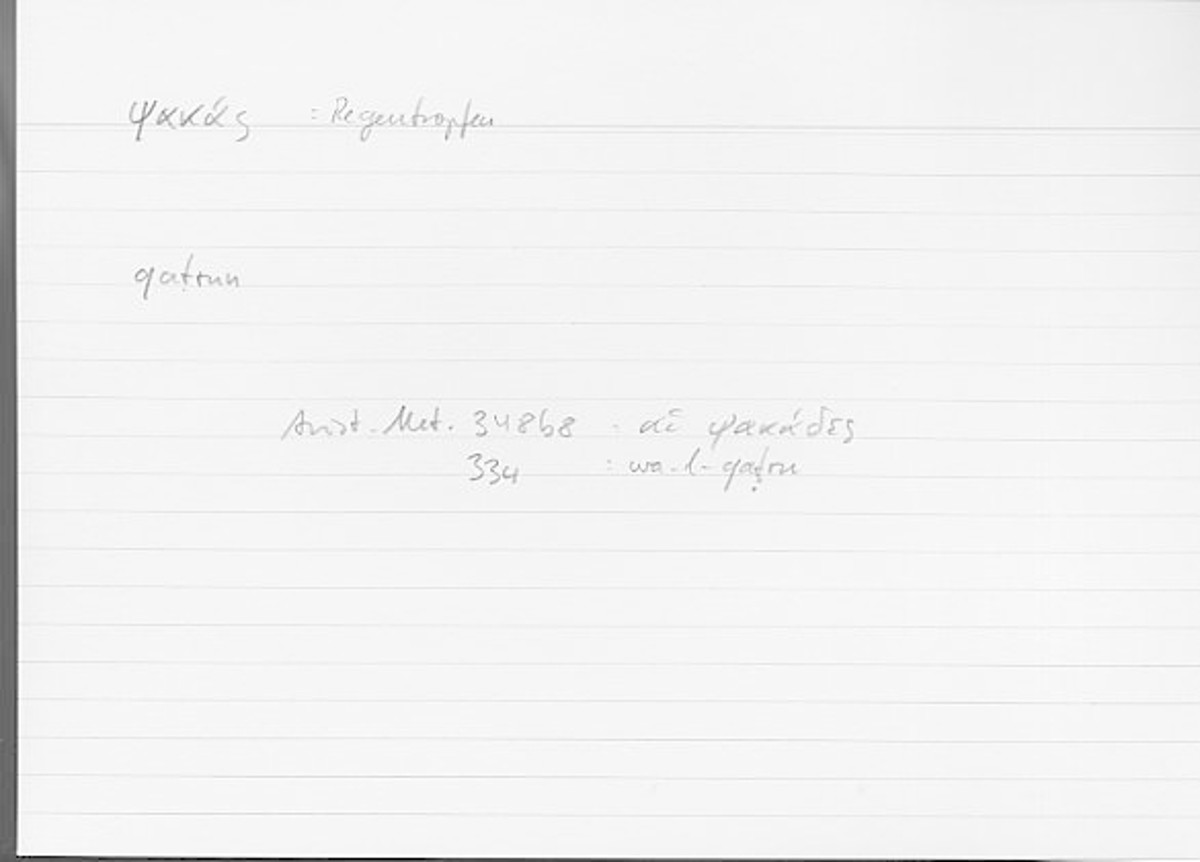 ψακάς : Regentropfen
qaṭrun
Arist. Met. 348b8 : αἱ ψακάδες
334 : wa-l-qaṭru